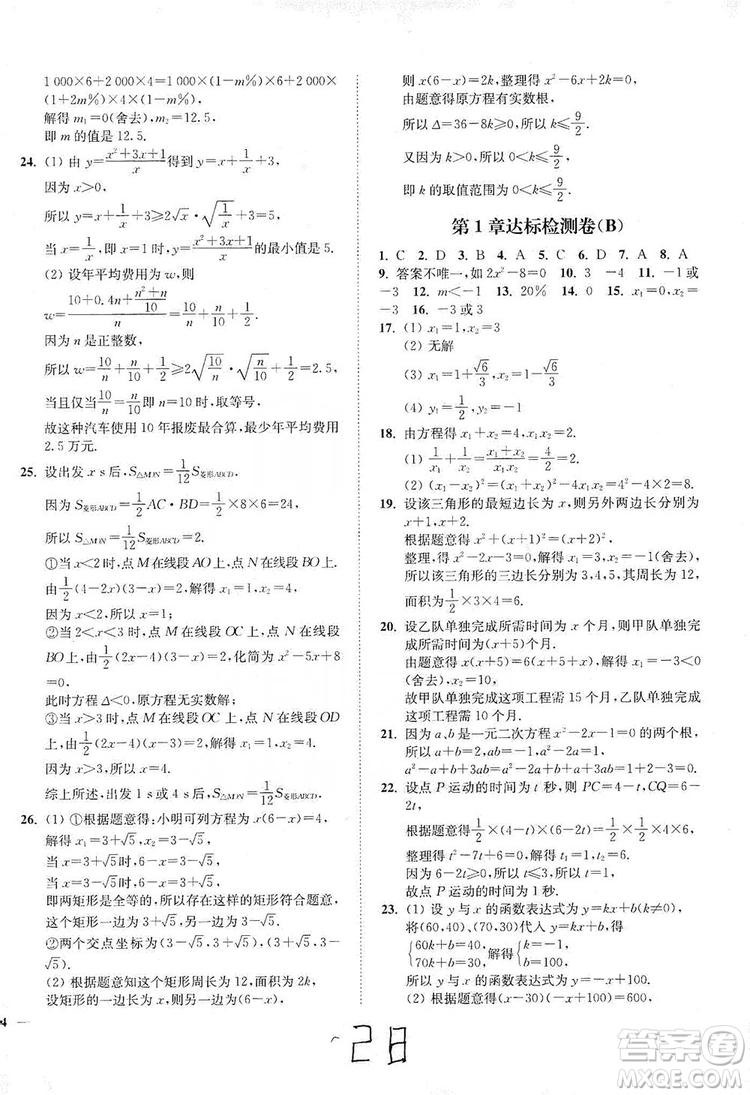 1 000×6+2 000×4=1 000×(1-m%)×6+2 000×
(1+2m%)×4×(1-m%),
解得 m₁=0(舍去),m₂=12.5.
即 m 的值是 12.5.
24. (1) 由 y=(x²+3x+1)/x 得到 y=x+1/x+3,
因为 x>0,
所以 y=x+1/x+3≥2√x·√(1/x)+3=5,
当 x=1/x,即 x=1 时,y=(x²+3x+1)/x 的最小值是 5.
(2) 设年平均费用为 w,
w=(10+0.4n+(n²+n)/10)/n=10/n+n/10+1/2,
因为 n 是正整数,
所以 w=10/n+n/10+1/2≥2√(10/n)·√(n/10)+1/2=2.5,
当且仅当 10/n=n/10,即 n=10 时,取等号.
故这种汽车使用 10 年报废最合算,最少年平均费用
2.5 万元.
25. 设出发 x s 后,S△MON=1/12 S菱形ABCD,
因为 S菱形ABCD=1/2 AC·BD=1/2×8×6=24,
所以 S△MON=1/12 S菱形ABCD=2.
①当 x<2 时,点 M 在线段 AO 上,点 N 在线段 BO 上.
由 1/2(4-2x)(3-x)=2,解得 x₁=1,x₂=4,
因为 x<2,所以 x=1.
②当 2<x<3 时,点 M 在线段 OC 上,点 N 在线段
BO 上,由 1/2(2x-4)(3-x)=2,化简为 x²-5x+8
=0.
此时方程 Δ<0,原方程无实数解.
③当 x>3 时,点 M 在线段 OC 上,点 N 在线段 OD
上,由 1/2(2x-4)(x-3)=2,解得 x₁=4,x₂=1.
因为 x>3,所以 x=4.
综上所述,出发 1 s 或 4 s 后,S△MON=1/12 S菱形ABCD.
26. (1) ①根据题意得:小明可列方程为 x(6-x)=4,
解得 x₁=3+√5,x₂=3-√5,
当 x=3+√5 时,6-x=3-√5,
当 x=3-√5 时,6-x=3+√5,
即两矩形是全等的,所以存在这样的矩形符合题意,
这个矩形一边为 3+√5,另一边为 3-√5.
②两个交点坐标为(3+√5,3-√5),(3-√5,3+
√5).
(2) 根据题意知这个矩形周长为 12,面积为 2k,
设矩形的一边长为 x,则另一边长为(6-x),
4
则 x(6-x)=2k,整理得 x²-6x+2k=0,
由题意得原方程有实数根,
所以 Δ=36-8k≥0,解得 k≤9/2,
又因为 k>0,所以 0<k≤9/2,
即 k 的取值范围为 0<k≤9/2.
第 1 章达标检测卷(B)
1. C 2. D 3. B 4. A 5. C 6. D 7. A 8. A
9. 答案不唯一,如 2x²-8=0 10. 3 -4 11. -1 或
-3 12. m<-1 13. 20% 14. 0 15. x₁=0,x₂=
-3 16. -3 或 3
17. (1) x₁=1,x₂=3
(2) 无解
(3) x₁=1+√6/3,x₂=1-√6/3
(4) y₁=1/2,y₂=-1
18. 由方程得 x₁+x₂=4,x₁x₂=2.
(1) 1/x₁+1/x₂=(x₁+x₂)/(x₁x₂)=2.
(2) (x₁-x₂)²=(x₁+x₂)²-4x₁x₂=4²-4×2=8.
19. 设该三角形的最短边长为 x,则另两边长分别为
x+1,x+2.
根据题意得 x²+(x+1)²=(x+2)²,
整理,得 x²-2x-3=0,解得 x₁=3,x₂=-1(舍去),
所以该三角形的三边长分别为 3,4,5,其周长为 12,
面积为 1/2×3×4=6.
20. 设乙队单独完成所需时间为 x 个月,则甲队单独完
成所需时间为(x+5)个月.
由题意得 x(x+5)=6(x+x+5),解得 x=-3<0
(舍去)或 x=10,x+5=15.
故甲队单独完成这项工程需 15 个月,乙队单独完成
这项工程需 10 个月.
21. 因为 a、b 是一元二次方程 x²-2x-1=0 的两个根,
所以 a+b=2,ab=-1,a²-2a=1,
a²-a+b+3ab=a²-2a+(a+b)+3ab=0.
22. 设点 P 运动的时间为 t 秒,则 PC=4-t,CQ=6-
2t,
根据题意得 1/2×(4-t)(6-2t)=1/2×1/2×4×6,
整理得 t²-7t+6=0,解得 t₁=1,t₂=6.
因为 0≤t≤3,所以 t=1.
故点 P 运动的时间为 1 秒.
23. (1) 设 y 与 x 的函数表达式为 y=kx+b(k≠0),
将(60,40)、(70,30)代入 y=kx+b,得
{60k+b=40, 70k+b=30, 解得{k=-1, b=100,
所以 y 与 x 的函数表达式为 y=-x+100.
(2) 根据题意得(x-30)(-x+100)=600,
28
答案圈
MXQE.COM